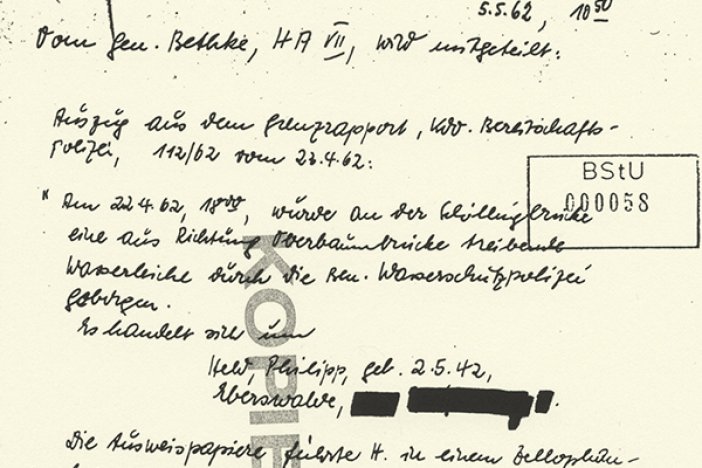 5.5.62, 18⁵⁰
Vom Gen. Bethke, HA VII, wird mitgeteilt:
Auszug aus dem Grenzrapport, Kdo. Bereitschafts-
polizei, 112/62 vom 23.4.62:
BStU
000058
"Am 22.4.62, 18⁰⁰, wurde an der Schillingbrücke
eine aus Richtung Oberbaumbrücke treibende
Wasserleiche durch die Ben. Wasserschutzpolizei
geborgen.
Es handelt sich um
Held, Philipp, geb. 2.5.42,
Eberswalde,
KOPIE
Die Ausweispapiere führte H. in einem Zellophan-